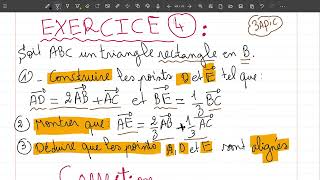 EXERCICE 4 :
3APIC
Soit ABC un triangle rectangle en B.
① - Construire les points D et E tel que :
AD = 2AB + AC et BE = 1/3 BC
② Montrer que AE = 2/3 AB + 1/3 AC
③ Déduire que les points A, D et E sont alignés
Correction